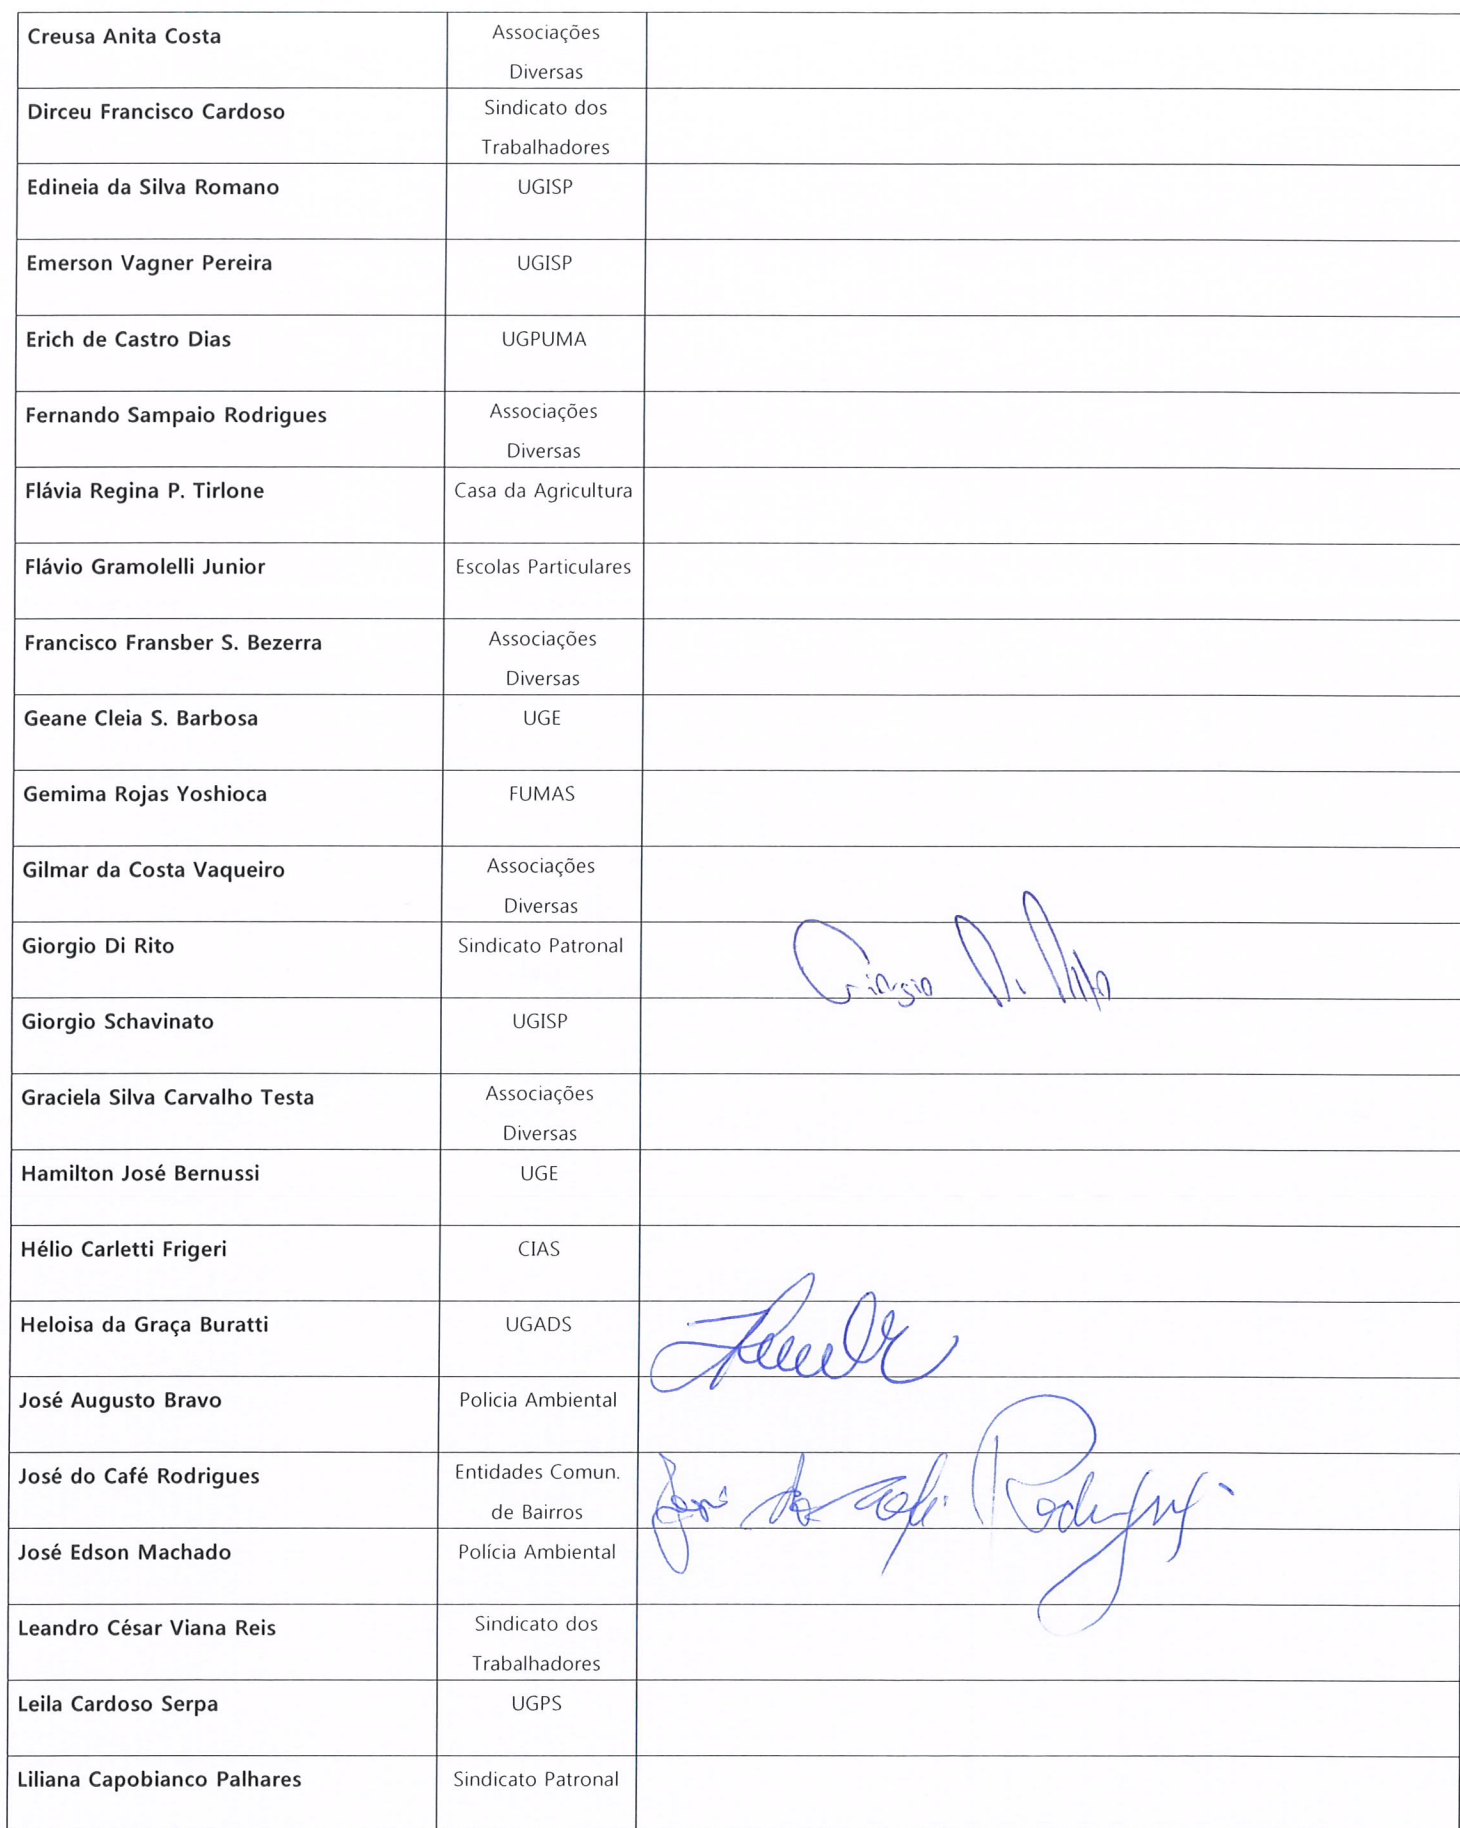 Creusa Anita Costa
Associações
Diversas
Dirceu Francisco Cardoso
Sindicato dos
Trabalhadores
Edineia da Silva Romano
UGISP
Emerson Vagner Pereira
UGISP
Erich de Castro Dias
UGPUMA
Fernando Sampaio Rodrigues
Associações
Diversas
Flávia Regina P. Tirlone
Casa da Agricultura
Flávio Gramolelli Junior
Escolas Particulares
Francisco Fransber S. Bezerra
Associações
Diversas
Geane Cleia S. Barbosa
UGE
Gemima Rojas Yoshioca
FUMAS
Gilmar da Costa Vaqueiro
Associações
Diversas
Giorgio Di Rito
Sindicato Patronal
Giorgio Di Rito
Giorgio Schavinato
UGISP
Graciela Silva Carvalho Testa
Associações
Diversas
Hamilton José Bernussi
UGE
Hélio Carletti Frigeri
CIAS
Heloisa da Graça Buratti
UGADS
José Augusto Bravo
Policia Ambiental
José do Café Rodrigues
Entidades Comun.
de Bairros
José do Café Rodrigues
José Edson Machado
Polícia Ambiental
Leandro César Viana Reis
Sindicato dos
Trabalhadores
Leila Cardoso Serpa
UGPS
Liliana Capobianco Palhares
Sindicato Patronal